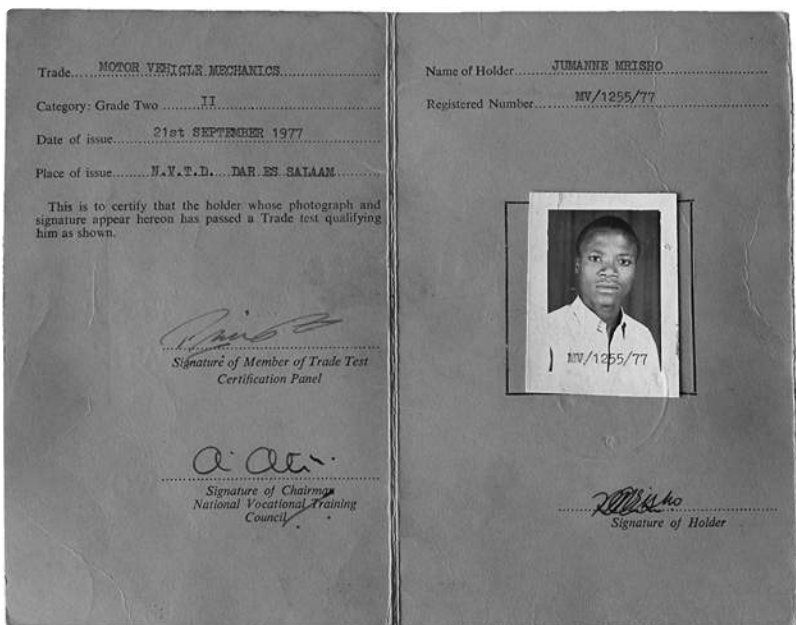 Trade....MOTOR VEHICLE MECHANICS....
Category: Grade Two ....II....
Date of issue....21st SEPTEMBER 1977....
Place of issue....N.V.T.D. DAR ES SALAAM....
This is to certify that the holder whose photograph and
signature appear hereon has passed a Trade test qualifying
him as shown.
Signature of Member of Trade Test
Certification Panel
Signature of Chairman
National Vocational Training
Council
Name of Holder....JUMANNE MRISHO....
Registered Number....MV/1255/77....
MV/1255/77
Signature of Holder